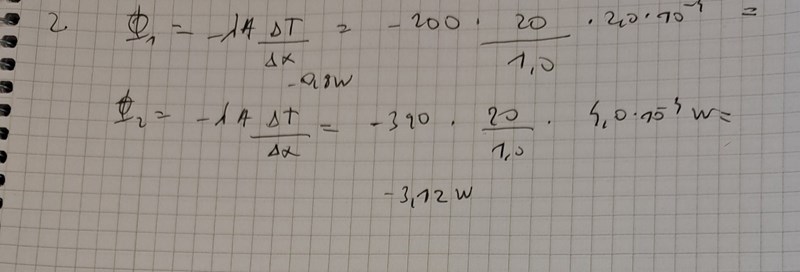 2. Φ₁ = -λA ΔT/Δx = -200 · 20/1,0 · 2,0·10⁻⁴ =
-0,8W
Φ₂ = -λA ΔT/Δx = -390 · 20/1,0 · 4,0·10⁻⁴ W =
-3,12 W